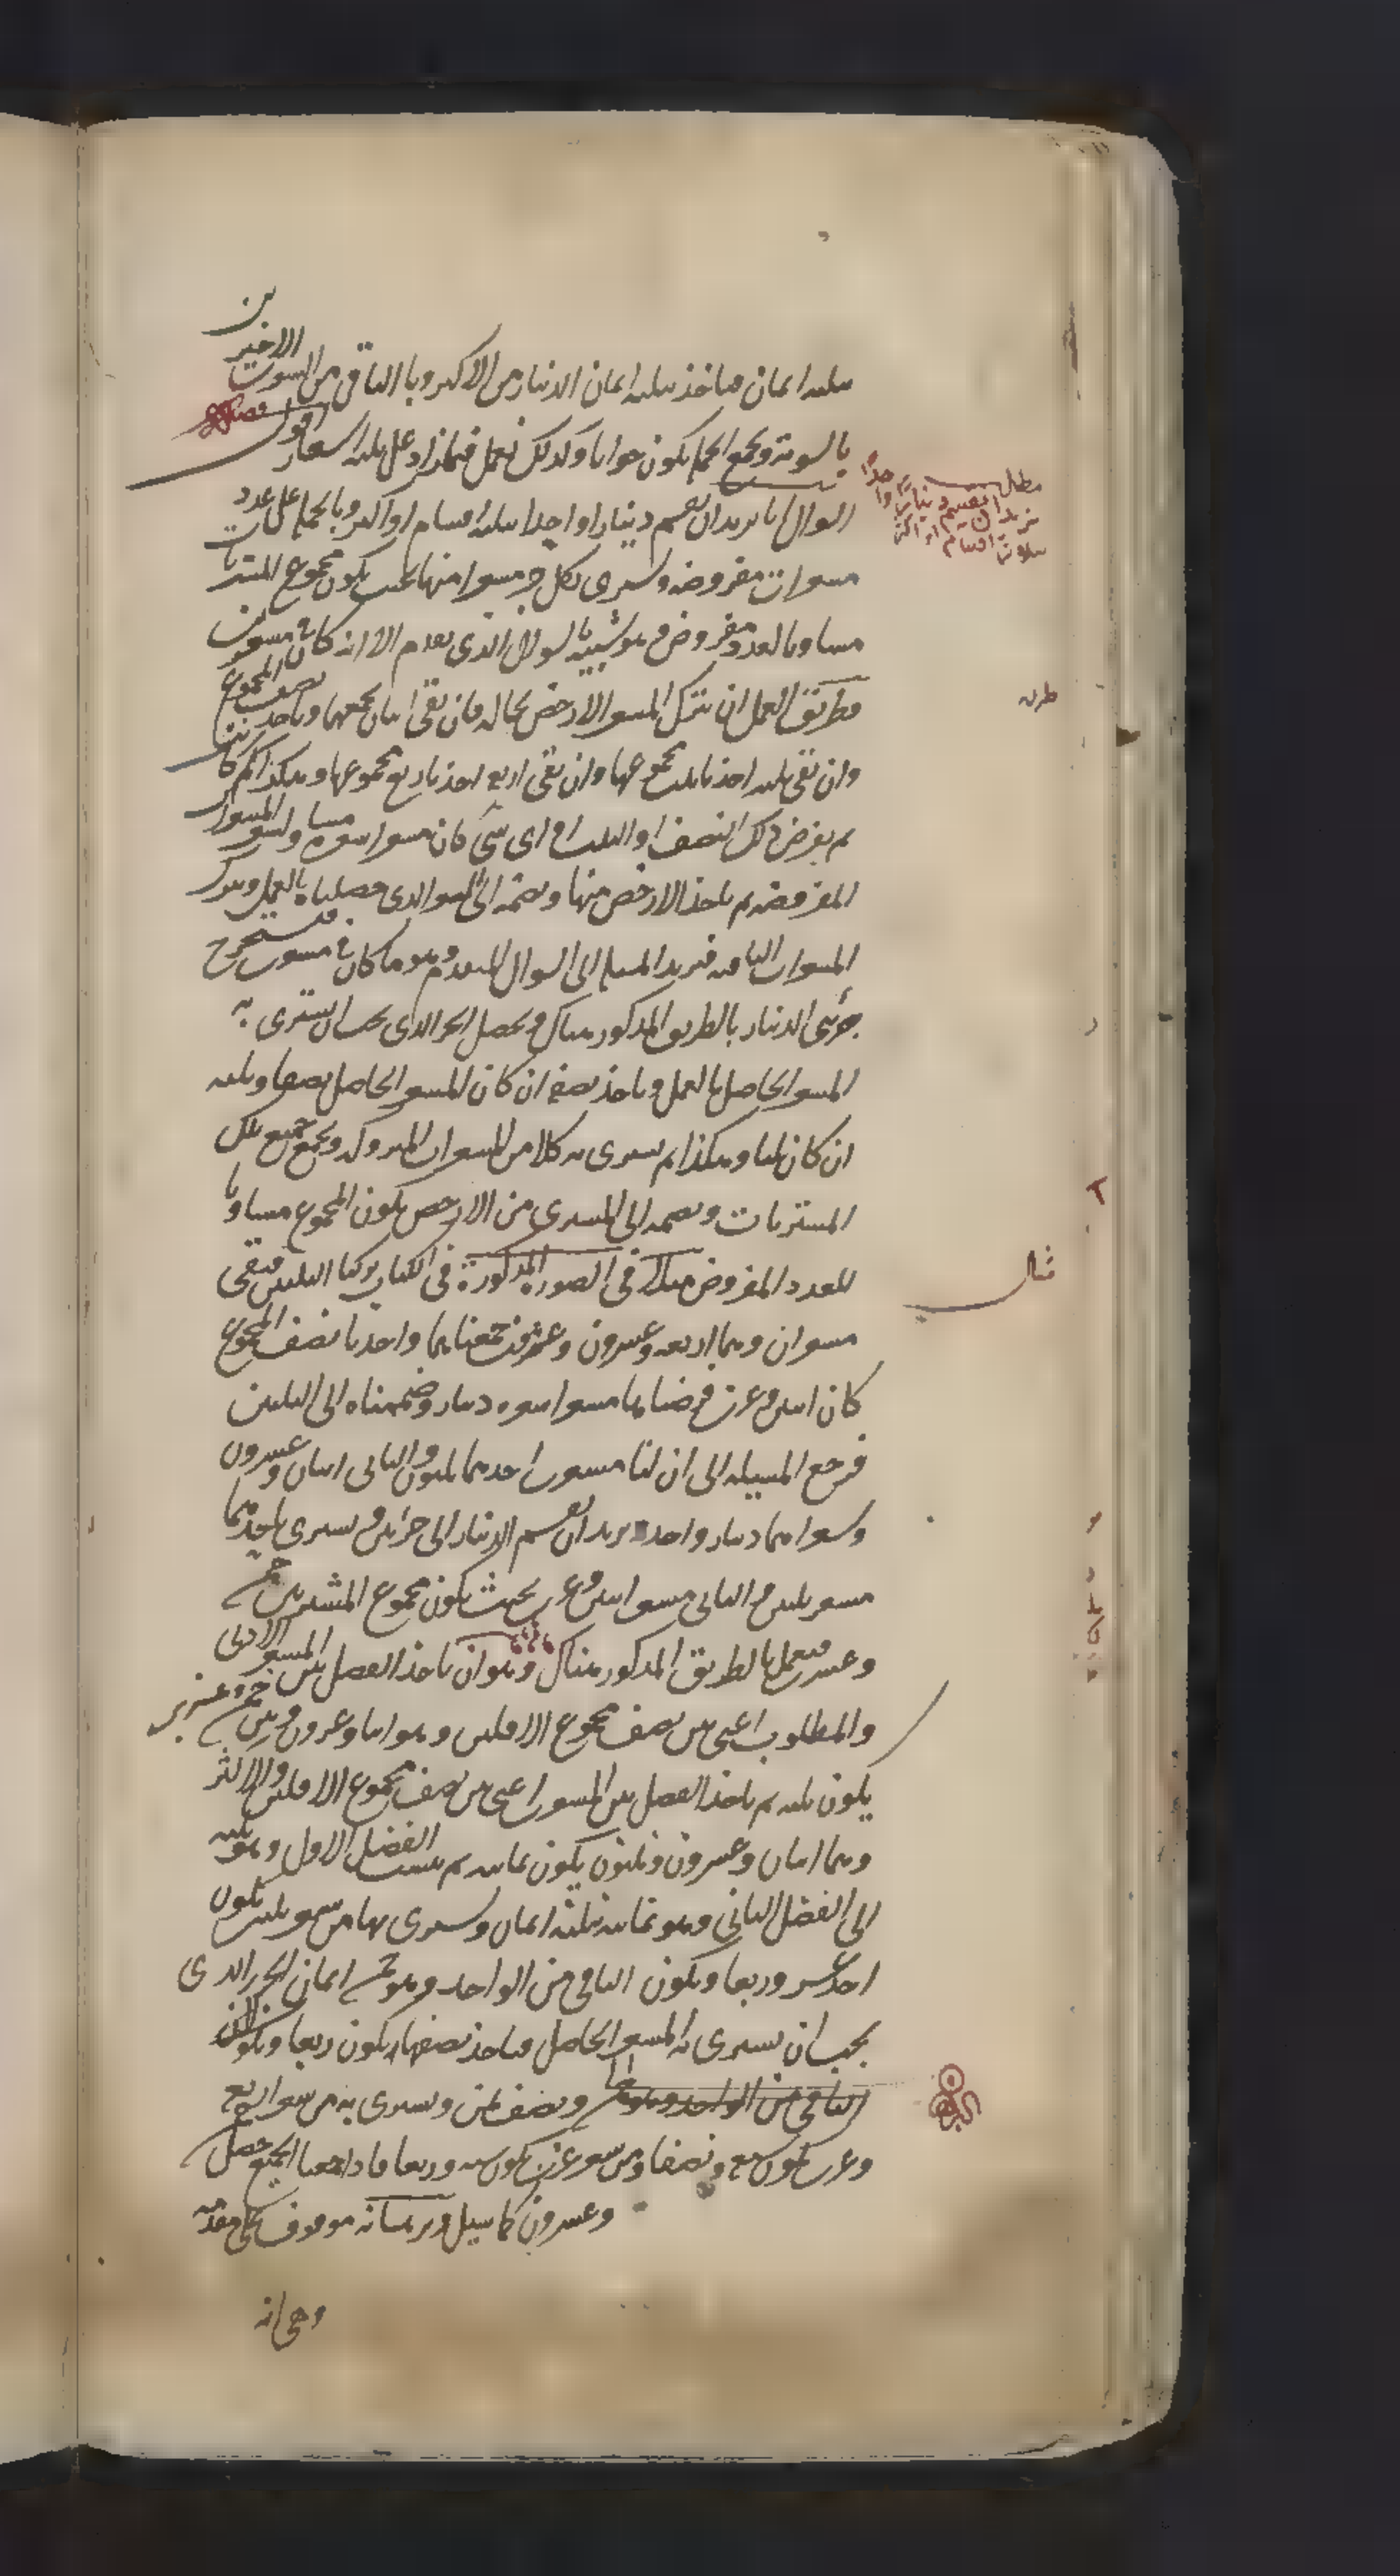 ثلثه اثمان فناخذ بثلثه اثمان الدينار من الاكبر وبالباقي من السعرين الاخيرين
بالسويه ونجمع الجمله يكون جوابا وكذلك نعمل فيما زاد على ثلثه اسعار اقول
السوال انا نريد ان نقسم دينارا واحدا بثلثه اقسام او اكثر وبالجمله على عدد
مسعرات مفروضه ونشتري بكل جزء مسعرا منها بحيث يكون مجموع المشتريات
مساويا لعدد مفروض وهو شبيه بالسوال الذي تقدم الا انه كان في مسعرين
فطريق العمل ان نترك المسعر الارخص بحاله فان بقى اثنان نجمعهما وناخذ نصف المجموع
وان بقى ثلثه اخذنا ثلث مجموعها وان بقى اربعه اخذنا ربع مجموعها وهكذا كم كانت
ثم نفرض ذلك النصف او الثلث او اي شي كان مسعرا سعره مساو لسعر المسعرات
المفروضه ثم ناخذ الارخص منها ونضمه الى المسعر الذي حصلناه بالعمل ونترك
المسعرات الباقيه فنرد المسئله الى السوال المتقدم وهو ما كان في مسعرين فنستخرج
جزئي الدينار بالطريق المذكور هناك ونحصل الجزء الذي يجب ان يشترى به
المسعر الحاصل بالعمل وناخذ نصفه ان كان المسعر الحاصل نصفا وثلثه
ان كان ثلثا وهكذا ثم نشتري به كلا من المسعرات المتروكه ونجمع جميع تلك
المشتريات ونضمه الى المشترى من الارخص يكون المجموع مساويا
للعدد المفروض مثلا في الصوره المذكورة في الكتاب تركنا الثلثين فبقى
مسعران وهما اربعه وعشرون وعشرون جمعناهما واخذنا نصف المجموع
كان اثنين وعشرين فرضناها مسعرا سعره دينار وضممناه الى الثلثين
فرجع المسئله الى ان لنا مسعرين احدهما ثلثون والثاني اثنان وعشرون
وسعراهما دينار واحد نريد ان نقسم الدينار الى جزاين ونشتري باحدهما
مسعر ثلثين وبالثاني مسعر اثنين وعشرين بحيث يكون مجموع المشتريين خمسه
وعشرين فنعمل بالطريق المذكور هناك وهو ان ناخذ الفضل بين المسعر الادنى
والمطلوب اعني بين نصف مجموع الاقلين وهو اثنا وعشرون وبين خمسه وعشرين
يكون ثلثه ثم ناخذ الفضل بين المسعرين اعني بين نصف مجموع الاقلين والاكثر
وهما اثنان وعشرون وثلثون يكون ثمانيه ثم ننسب الفضل الاول وهو ثلثه
الى الفضل الثاني وهو ثمانيه بثلثه اثمان ونشتري بها من سعر ثلثين يكون
احد عشر وربعا ويكون الباقي من الواحد وهو خمسه اثمان الجزء الذي
يجب ان نشتري به المسعر الحاصل فناخذ نصفها يكون ربعا ويكون الثمن
الباقي من الواحد وهو ونصف ثمن ونشتري به من سعر اربع
وعشرين يكون سبعه ونصفا ومن سعر عشرين يكون سته وربعا فاذا جمعنا الجميع حصل خمسه
وعشرون كما سيل وبرهانه موقوف على مقدمه
وهي انه
مطلب
نريد ان نقسم دينارا واحدا
بثلاثة اقسام او اكثر
طريقه
مثال